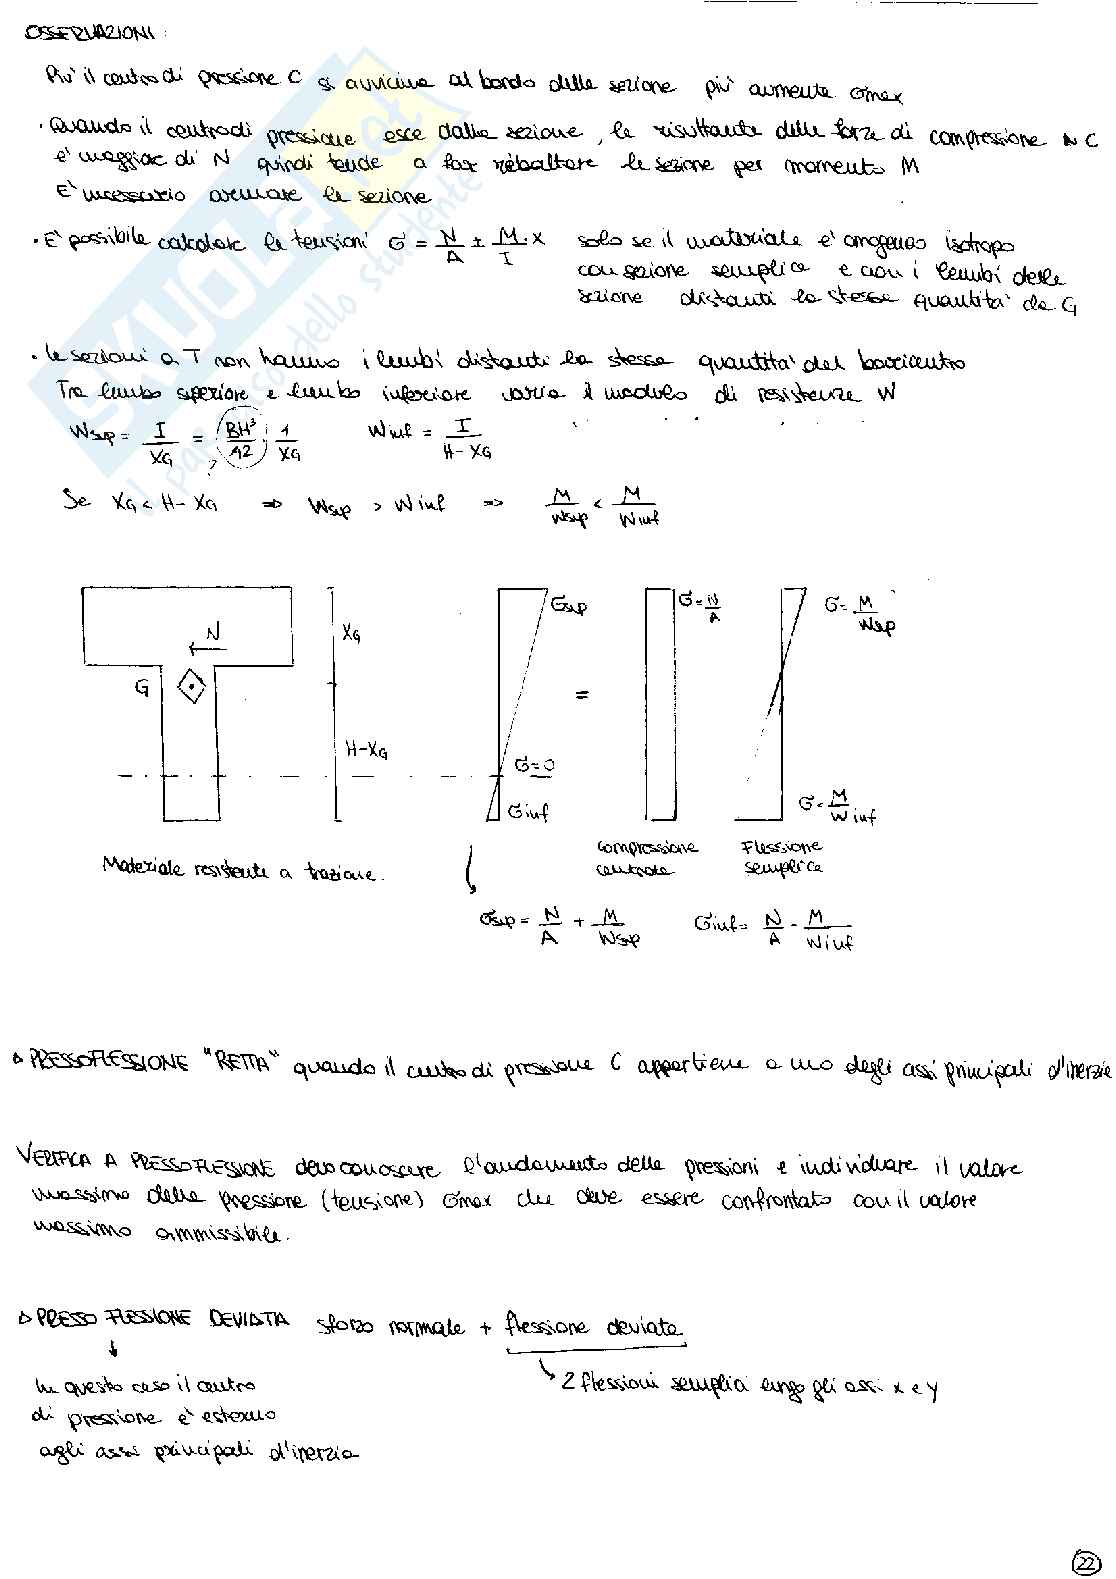 OSSERVAZIONI:
Più il centro di pressione C si avvicina al bordo della sezione più aumenta σmax
• Quando il centro di pressione esce dalla sezione, la risultante delle forze di compressione NC
è maggiore di N quindi tende a far ribaltare la sezione per momento M
E' necessario armare la sezione
• E' possibile calcolare le tensioni σ = N/A ± M/I · x solo se il materiale è omogeneo isotropo
con sezione semplice e con i lembi della
sezione distanti la stessa quantità da G
• le sezioni a T non hanno i lembi distanti la stessa quantità dal baricentro
Tra lembo superiore e lembo inferiore varia il modulo di resistenza W
Wsup = I/XG = BH³/12 · 1/XG Winf = I/H-XG
Se XG < H-XG => Wsup > Winf => M/Wsup < M/Winf
N
G
XG
H-XG
σsup
σ=0
σinf
=
σ=N/A
σ=M/Wsup
σ=M/Winf
Compressione
centrata
Flessione
semplice
Materiale resistente a trazione.
σsup = N/A + M/Wsup σinf = N/A - M/Winf
△ PRESSOFLESSIONE "RETTA" quando il centro di pressione C appartiene a uno degli assi principali d'inerzia
VERIFICA A PRESSOFLESSIONE devo conoscere l'andamento delle pressioni e individuare il valore
massimo della pressione (tensione) σmax che deve essere confrontato con il valore
massimo ammissibile.
△ PRESSO FLESSIONE DEVIATA sforzo normale + flessione deviata
2 flessioni semplici lungo gli assi x e y
In questo caso il centro
di pressione è esterno
agli assi principali d'inerzia
22
SKUOLA.net
il paradiso dello studente